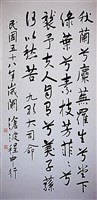 秋蘭兮麋蕪羅生兮堂下
綠葉兮素枝芳菲菲兮
襲予夫人自有兮美子蓀
何以兮愁苦 九歌大司命
民國五十八年歲闌 滄波程中行